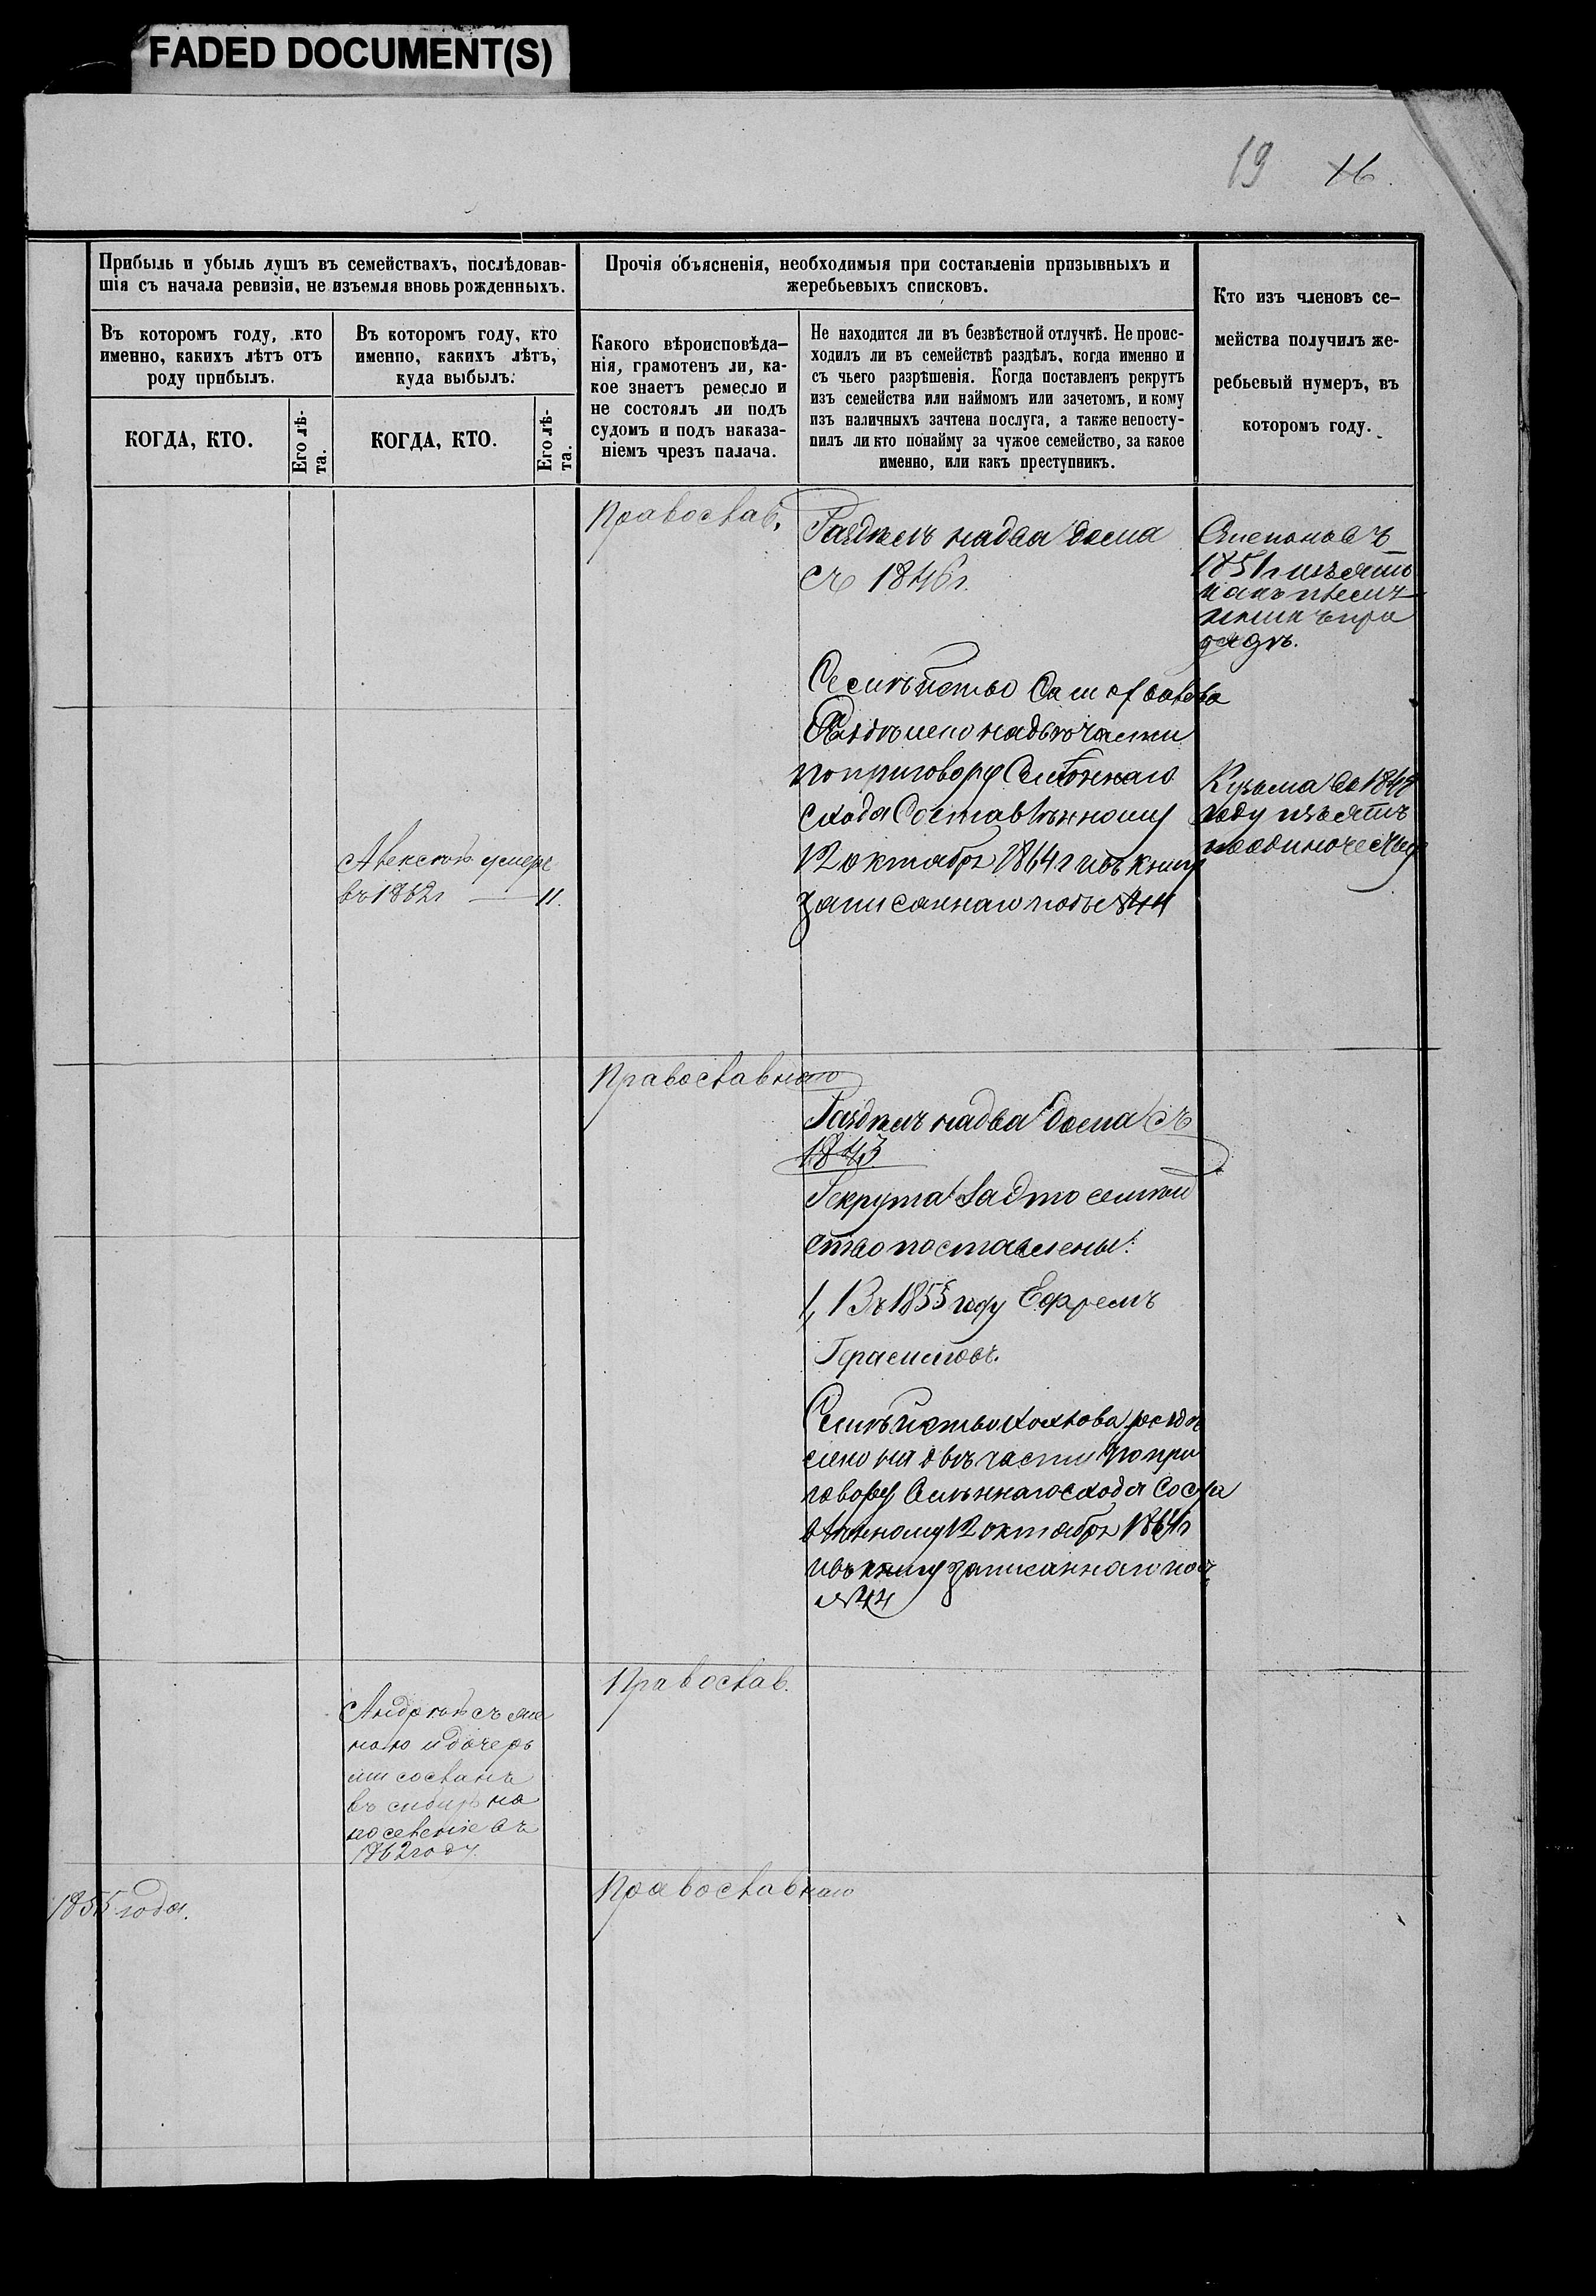 FADED DOCUMENT(S)
19 16.
Прибыль и убыль душъ въ семействахъ, послѣдовав-
шія съ начала ревизіи, не изъемля вновь рожденныхъ.
Прочія объясненія, необходимыя при составленіи призывныхъ и
жеребьевыхъ списковъ.
Кто изъ членовъ се-
мейства получилъ же-
ребьевый нумеръ, въ
которомъ году.
Въ которомъ году, кто
именно, какихъ лѣтъ отъ
роду прибылъ.
Въ которомъ году, кто
именно, какихъ лѣтъ,
куда выбылъ.
Какого вѣроисповѣда-
нія, грамотенъ ли, ка-
кое знаетъ ремесло и
не состоялъ ли подъ
судомъ и подъ наказа-
ніемъ чрезъ палача.
Не находится ли въ безвѣстной отлучкѣ. Не проис-
ходилъ ли въ семействѣ раздѣлъ, когда именно и
съ чьего разрѣшенія. Когда поставленъ рекрутъ
изъ семейства или наймомъ или зачетомъ, и кому
изъ наличныхъ зачтена послуга, а также непосту-
пилъ ли кто понайму за чужое семейство, за какое
именно, или какъ преступникъ.
КОГДА, КТО.
Его лѣ-
та.
КОГДА, КТО.
Его лѣ-
та.
Православ.
Раздѣлъ на два дома
съ 1846 г.
1851 г изъятъ
Семѣйство
Раздѣлено на двѣ части
по приговору
схода Составлѣнному
12 октября 1864 г и въ книгу
записаннаго подъ №44
Кузьма въ 1848
году изъятъ
по одиночеству
Алексѣй умеръ
въ 1862 г — 11.
Православнаго
Раздѣлъ на два дома съ
1843
Рекрута за это семѣй
ство поставлены:
1, Въ 1855 году Ефремъ
Герасимовъ.
Семѣйство раздѣ
лено на двѣ части По при
говору схода Соста
влѣнному 12 октября 1864 г
и въ книгу записаннаго подъ
№44
Православ.
Андрей съ же
ною и дочерь
ми сосланъ
въ сибирь на
поселеніе въ
1862 году.
Православнаго
1855 года.